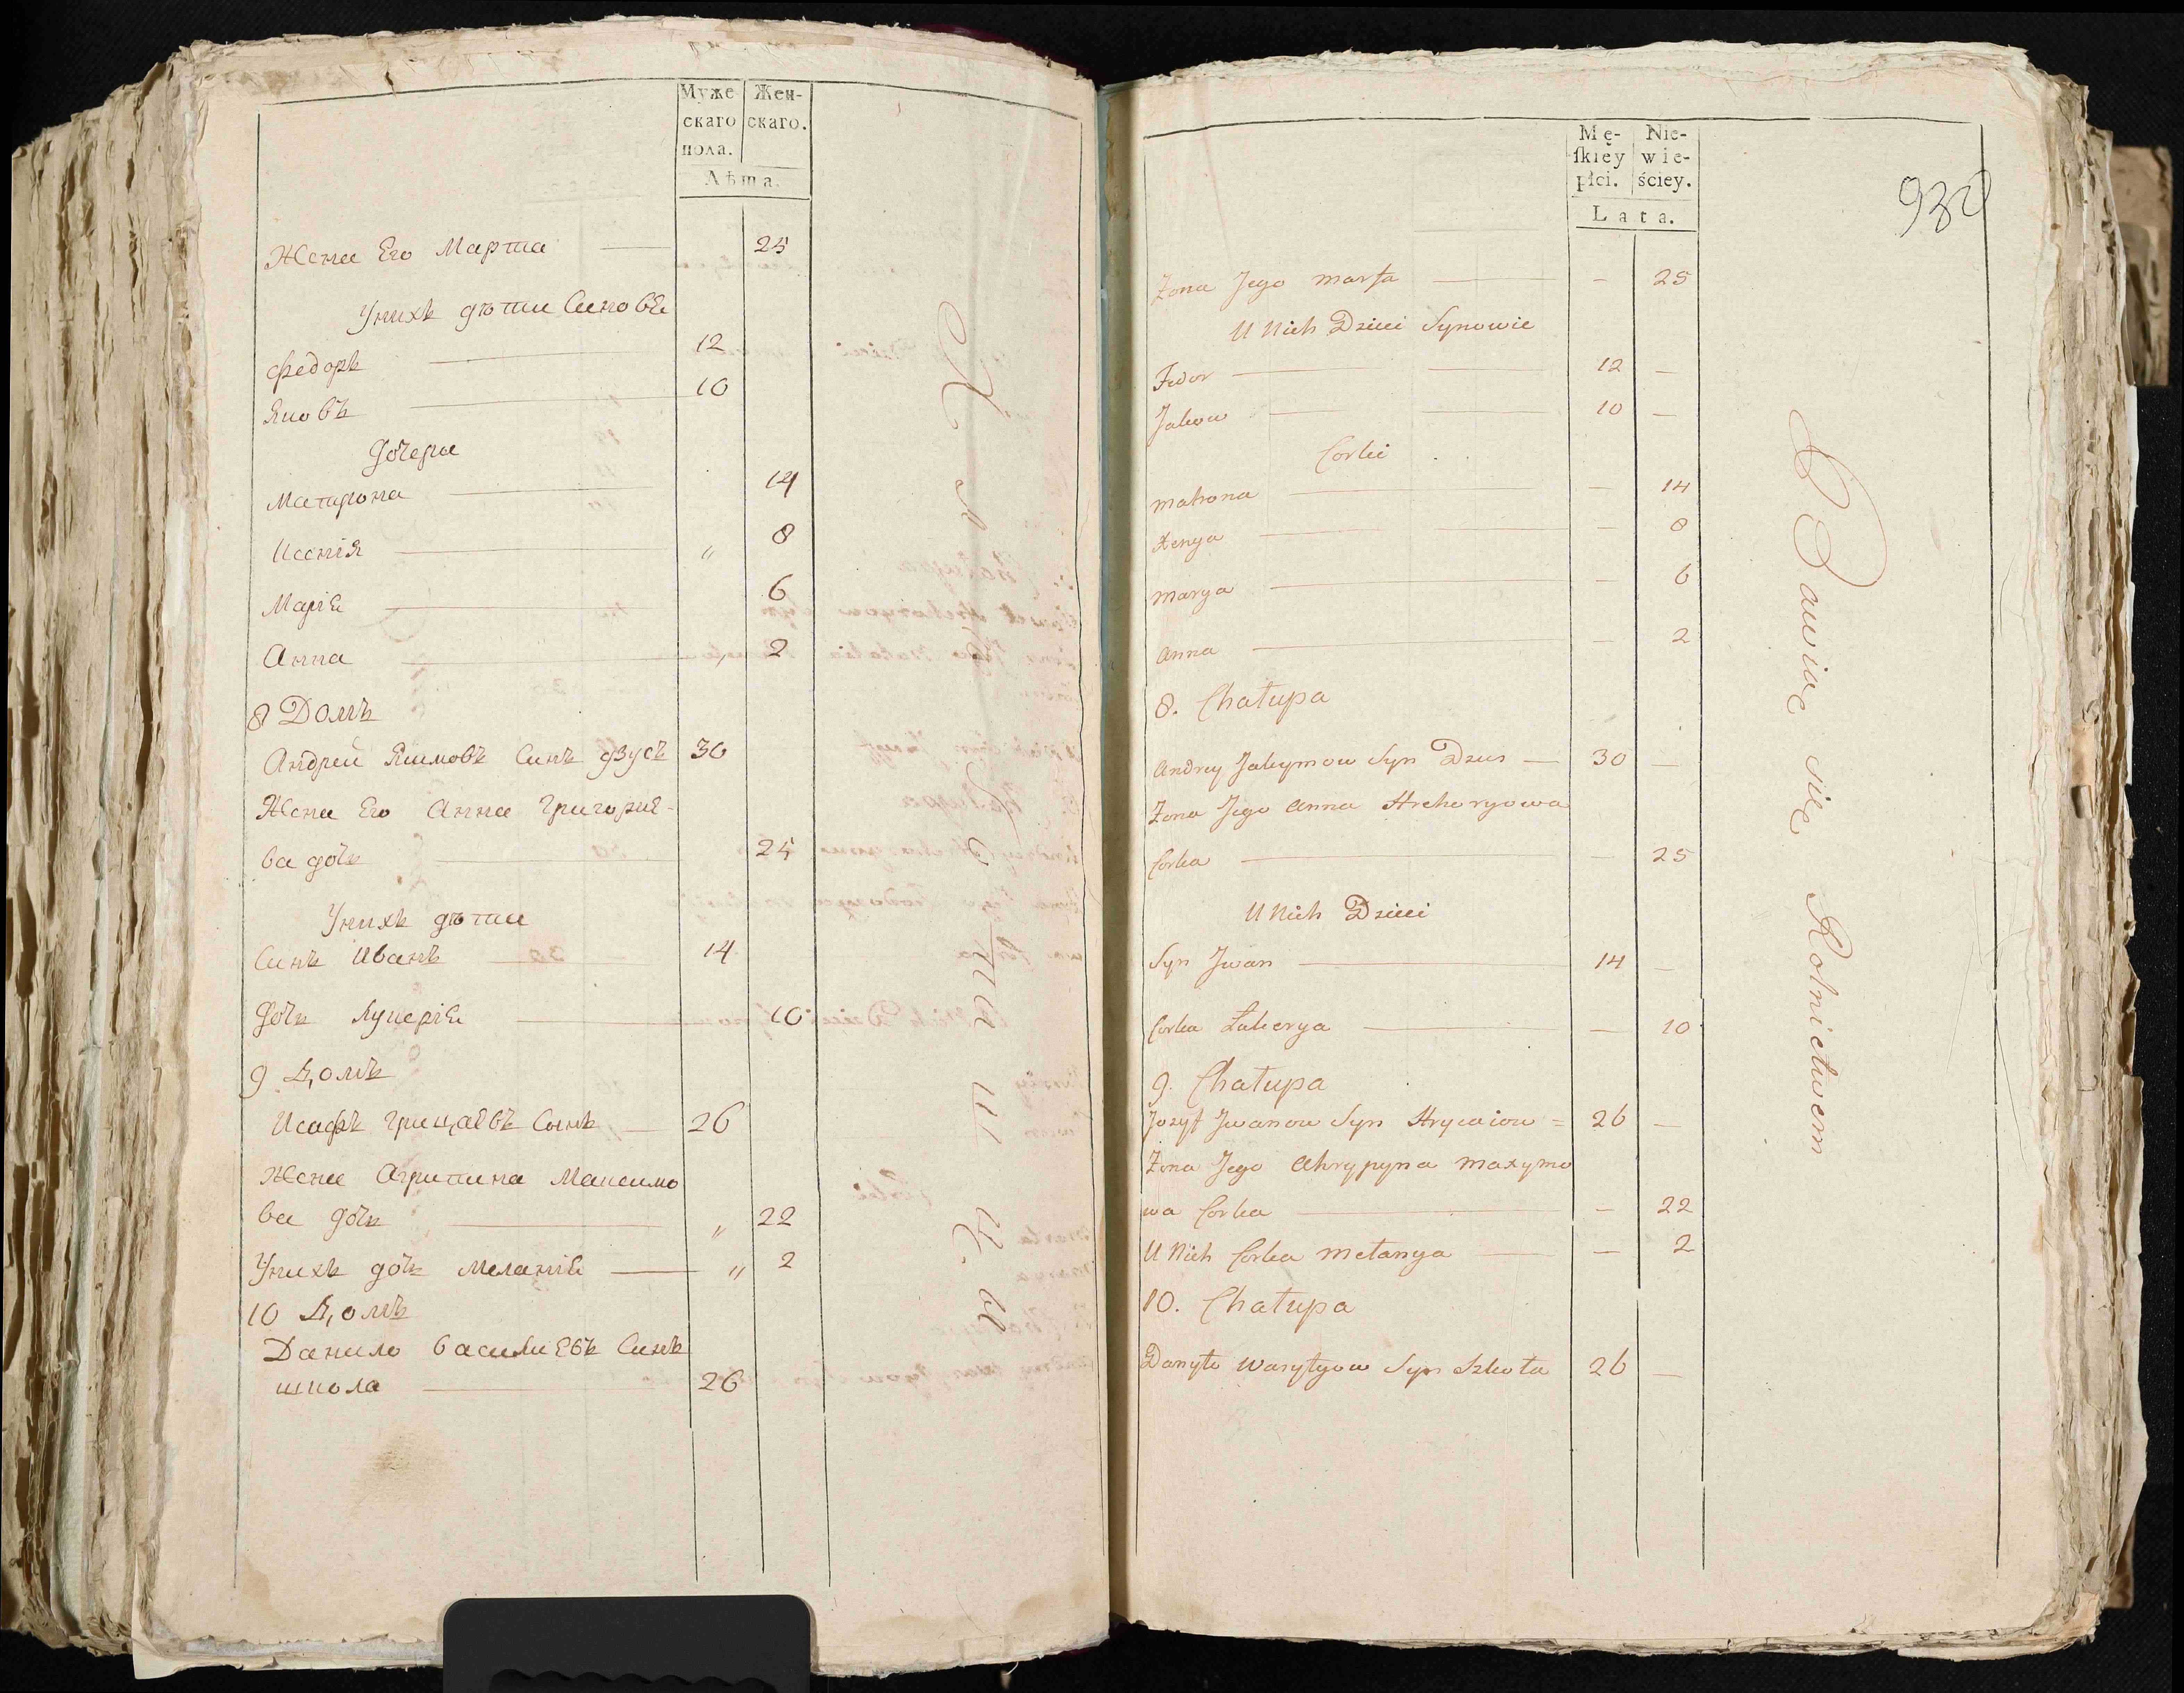 Муже- Жен-
скаго скаго.
пола.
Лѣта.
Жена Его Марта 25
Унихъ дѣти Синовѣ
Федоръ 12
Яковъ 10
Дочери
Матрона 14
Ксенія „ 8
Марія 6
Анна „ 2
8 Домъ
Андрей Якимовъ Синъ дзусъ 30
Жена Его Анна Григорие-
ва дочь 25
Унихъ дѣти
Синъ Иванъ 14
Дочь Лукерія 10
9 Домъ
Исафъ Грицаевъ Сынъ 26
Жена Агрипина Максимо
ва дочь „ 22
Унихъ дочь Меланія „ 2
10 Домъ
Данило василиевъ Синъ
школа 26
Mę- Nie-
ſkiey wie-
płci. ściey.
Lata.
932
Żona Jego marta - 25
U Nich Dzieci Synowie
Fedor 12 —
Jakow 10 —
Corki
matrona — 14
Xenya — 8
marya — 6
Anna — 2
8. Chałupa
Andrey Jakymow Syn Dzus — 30 —
Żona Jego Anna Hrehoryowa
Corka 25
U Nich Dzieci
Syn Jwan 14 —
Corka Łukerya — 10
9. Chałupa
Jozyf Jwanow Syn Hrycaiow = 26 —
Żona Jego Ahrypyna maxymo
wa Corka — 22
U Nich Corka mełanya — 2
10. Chałupa
Danyło Wasylyow Syn Szkoła 26 —
Bawiąc się Rolnictwem